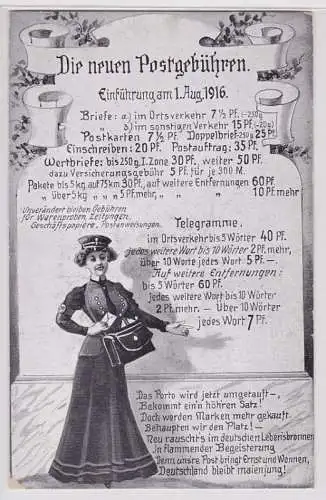 Die neuen Postgebühren.
Einführung am 1. Aug. 1916.
Briefe: a) im Ortsverkehr 7 ½ Pf. (-250g)
b) im sonstigen Verkehr 15 Pf. (-20g)
Postkarten 7 ½ Pf. Doppelbrief-250g 25 Pf.
Einschreiben: 20 Pf. Postauftrag: 35 Pf.
Wertbriefe: bis 250g I. Zone 30 Pf., weiter 50 Pf.
dazu Versicherungsgebühr 5 Pf. für je 300 M.
Pakete bis 5 kg auf 75 km 30 Pf., auf weitere Entfernungen 60 Pf.
" über 5 kg " " 5 Pf. mehr, " " " 10 Pf. mehr
Unverändert bleiben Gebühren
für Warenproben, Zeitungen,
Geschäftspapiere, Postanweisungen.
Telegramme,
im Ortsverkehr bis 5 Wörter 40 Pf.
jedes weitere Wort bis 10 Wörter 2 Pf. mehr,
über 10 Worte jedes Wort 5 Pf. —
Auf weitere Entfernungen:
bis 5 Wörter 60 Pf.
jedes weitere Wort bis 10 Wörter
2 Pf. mehr. — Über 10 Wörter
jedes Wort 7 Pf.
Das Porto wird jetzt umgetauft —,
Bekommt ein'n höhren Satz!
Doch werden Marken mehr gekauft.
Behaupten wir den Platz! —
Neu rauscht's im deutschen Lebensbronnen
In flammender Begeisterung
Denn unsre Post bringt Ernst und Wonnen,
Deutschland bleibt maienjung!